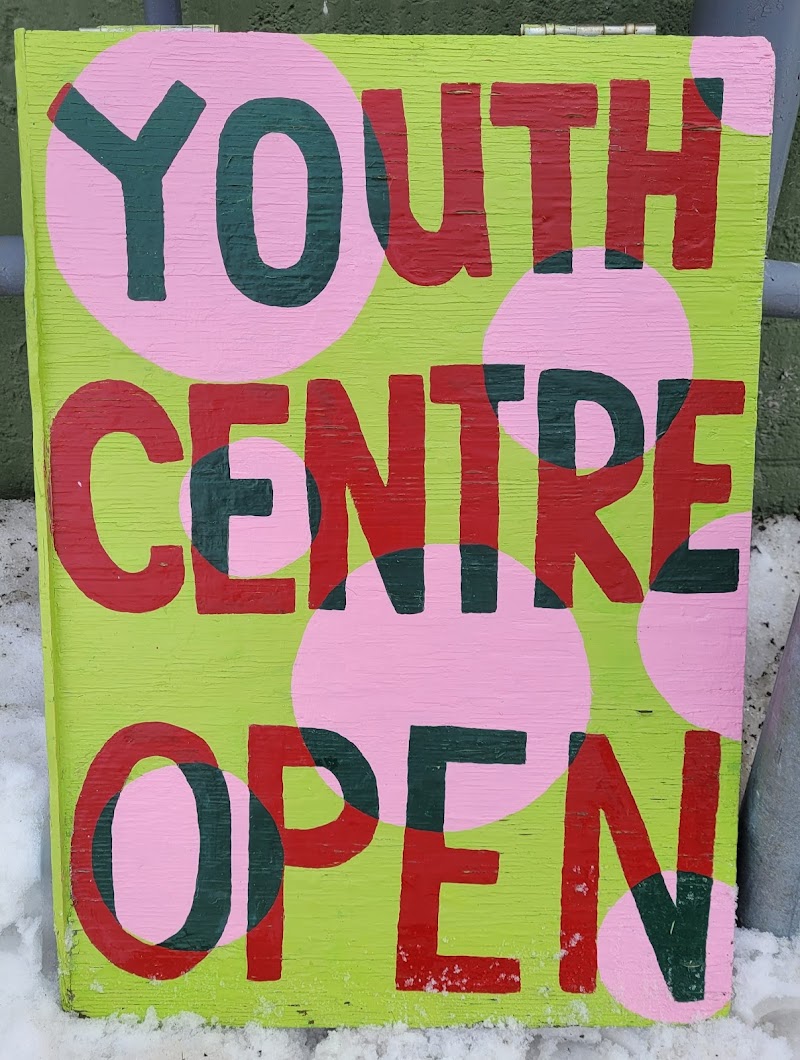 YOUTH
CENTRE
OPEN